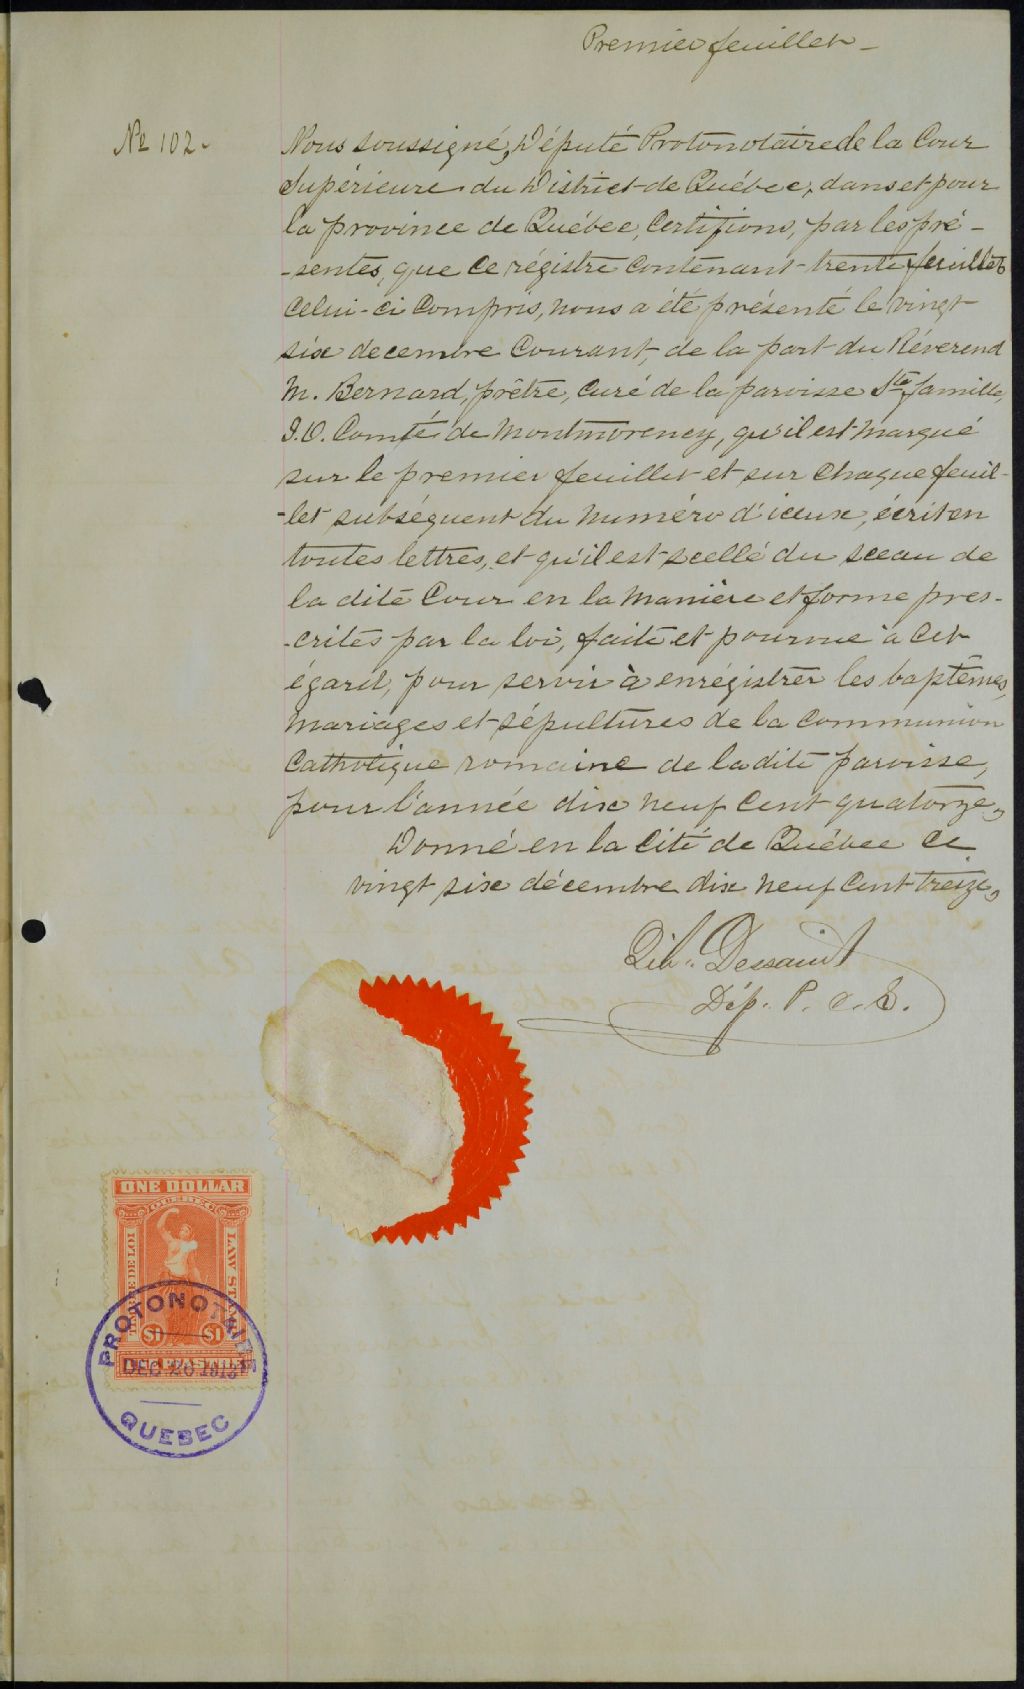 Premier feuillet -
No 102.
Nous soussigné, Député Protonotaire de la Cour
Supérieure du District de Québec, dans et pour
la province de Québec, Certifions, par les pré -
- sentes, que ce régistre contenant trente feuillets
celui-ci compris, nous a été présenté le vingt
six decembre courant, de la part du Réverend
M. Bernard, prêtre, curé de la paroisse Ste famille,
I.O. Comté de Montmorency, qu'il est marqué
sur le premier feuillet et sur chaque feuil-
-let subséquent du numéro d'iceux, écrit en
toutes lettres, et qu'il est scellé du sceau de
la dite Cour en la manière et forme pres-
-crites par la loi, faite et pourvue à cet
égard, pour servir à enrégistrer les baptêmes,
mariages et sépultures de la communion
Catholique romaine de la dite paroisse,
pour l'année dix neuf cent quatorze,
Donné en la Cité de Québec ce
vingt six décembre dix neuf cent treize,
Dessaint
Dép. P. C. S.
ONE DOLLAR
QUEBEC
TIMBRE DE LOI
LAW STAMP
$1 $1
UNE PIASTRE
PROTONOTAIRE
DEC 26 1913
QUEBEC